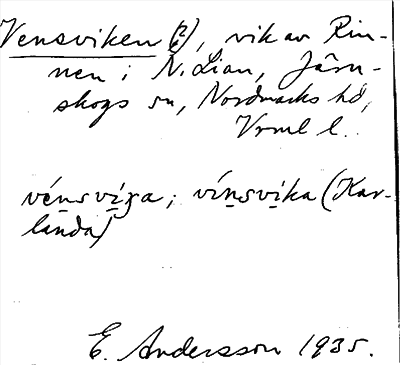 Vensviken (?), vik av Rin-
nen i N. Lian, Järn-
skogs sn, Nordmarks hd,
Vrml l.
vénsvíka; vínsvika (Kar-
landa)
E. Andersson 1935.